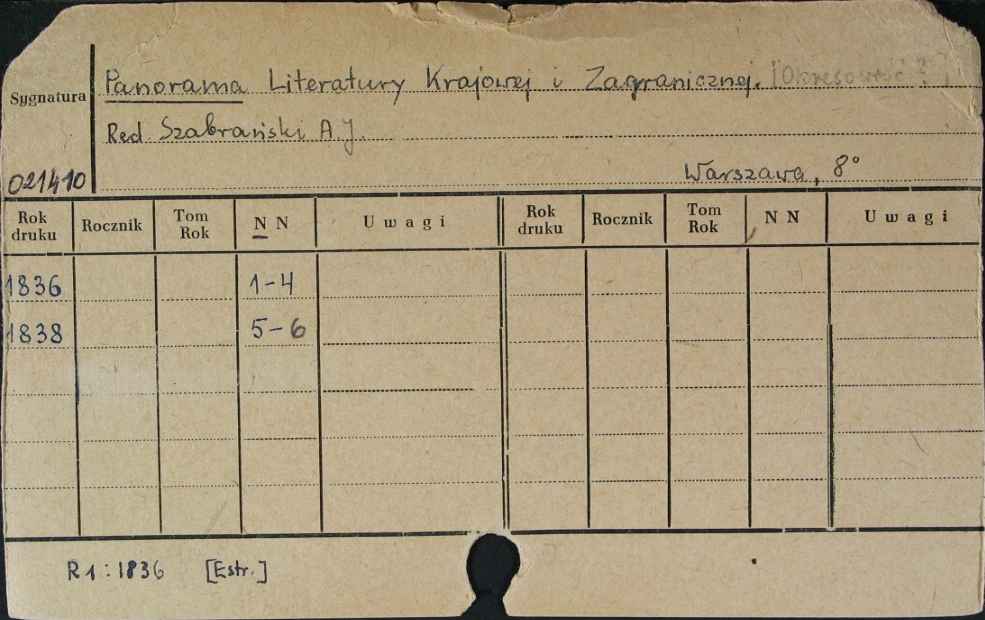 Panorama Literatury Krajowej i Zagranicznej. [Okresowość ?]
Sygnatura
Red Szabrański A. J.
021410
Warszawa, 8°
Rok druku Rocznik Tom Rok N N Uwagi Rok druku Rocznik Tom Rok N N Uwagi
1836 1-4
1838 5-6
R 1 : 1836 [Estr.]